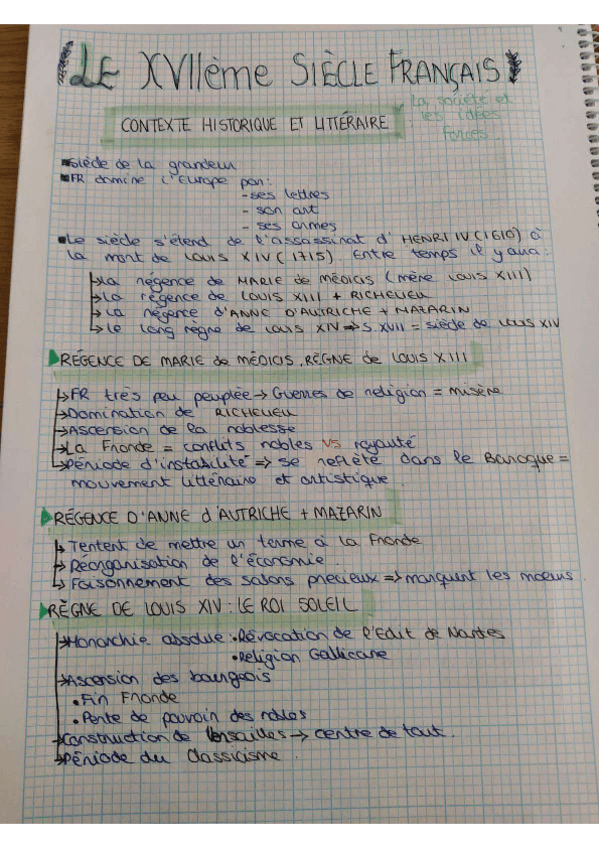 LE XVIIème SIÈCLE FRANÇAIS
CONTEXTE HISTORIQUE ET LITTÉRAIRE
La société et
les idées
forces.
Siècle de la grandeur
FR domine l'Europe par:
- ses lettres
- son art
- ses armes
Le siècle s'étend de l'assassinat d'HENRI IV (1610) à
la mort de LOUIS XIV (1715). Entre temps il y aura:
↳ La régence de MARIE de MÉDICIS (mère LOUIS XIII)
↳ La régence de LOUIS XIII + RICHELIEU
↳ La régence d'ANNE D'AUTRICHE + MAZARIN
↳ Le long règne de LOUIS XIV ⇒ S. XVII = siècle de LOUIS XIV
RÉGENCE DE MARIE de MÉDICIS, RÈGNE de LOUIS XIII
↳ FR très peu peuplée → Guerres de religion = misère
↳ Domination de RICHELIEU
↳ Ascension de la noblesse
↳ La Fronde = conflits nobles VS royauté
↳ Période d'instabilité ⇒ se reflète dans le Baroque =
mouvement littéraire et artistique.
RÉGENCE D'ANNE d'AUTRICHE + MAZARIN
↳ Tentent de mettre un terme à la Fronde
↳ Réorganisation de l'économie.
↳ Foisonnement des salons précieux ⇒ marquent les moeurs.
RÈGNE DE LOUIS XIV: LE ROI SOLEIL
→ Monarchie absolue: • Révocation de l'Edit de Nantes
• Religion Gallicane
→ Ascension des bourgeois
• Fin Fronde
• Perte de pouvoir des nobles
→ Construction de Versailles → centre de tout.
↳ Période du Classicisme.